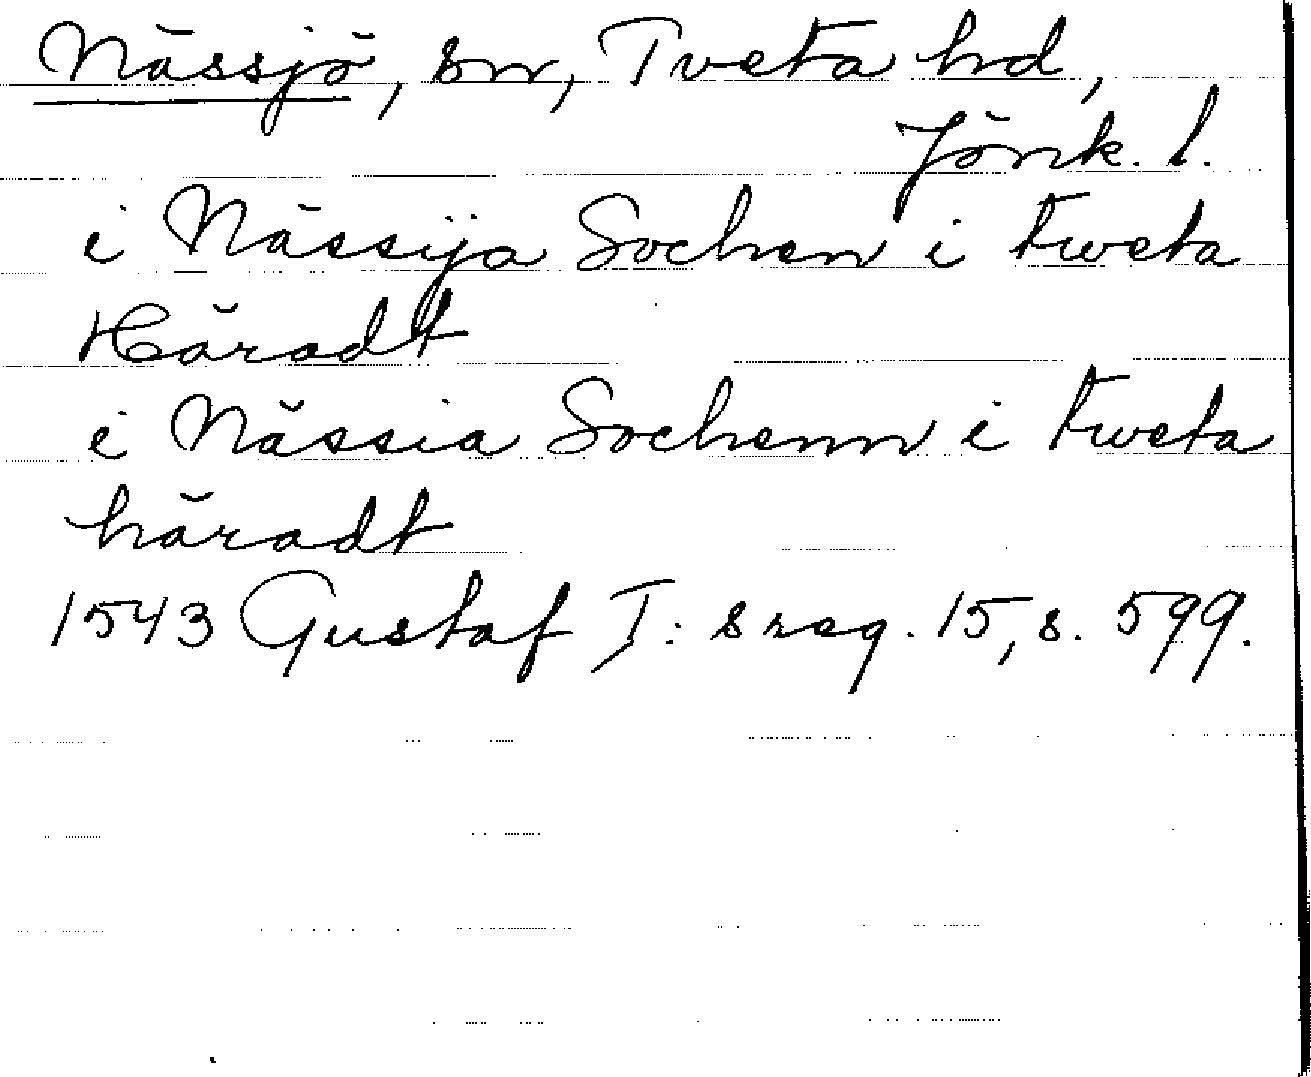 Nässjö, sn, Tveta hd,
Jönk. l.
i Nässija Sochen i tweta
Häradt
i Nässia Sochenn i tweta
häradt
1543 Gustaf I: s reg. 15, s. 599.